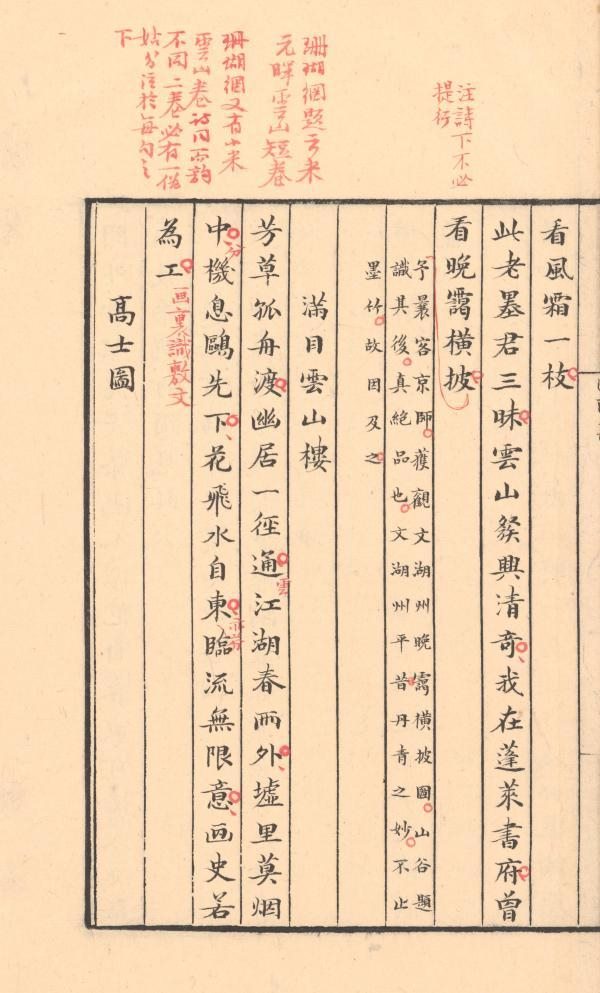 注詩下不必
提行
珊瑚網題云米
元暉雲山短卷
珊瑚網又有小米
雲山卷詩同而韵
不同二卷必有一偽
姑分注於每句之
下
看風霜一枝
此老墨君三昧雲山發興清奇我在蓬萊書府曾
看晚靄橫披
予曩客京師獲觀文湖州晚靄橫披圖山谷題
識其後真絕品也文湖州平昔丹青之妙不止
墨竹故因及之
滿目雲山樓
芳草孤舟渡幽居一徑通江湖春雨外墟里莫烟
雲
中機息鷗先下花飛水自東臨流無限意画史若
為工
画裏識敷文
高士圖